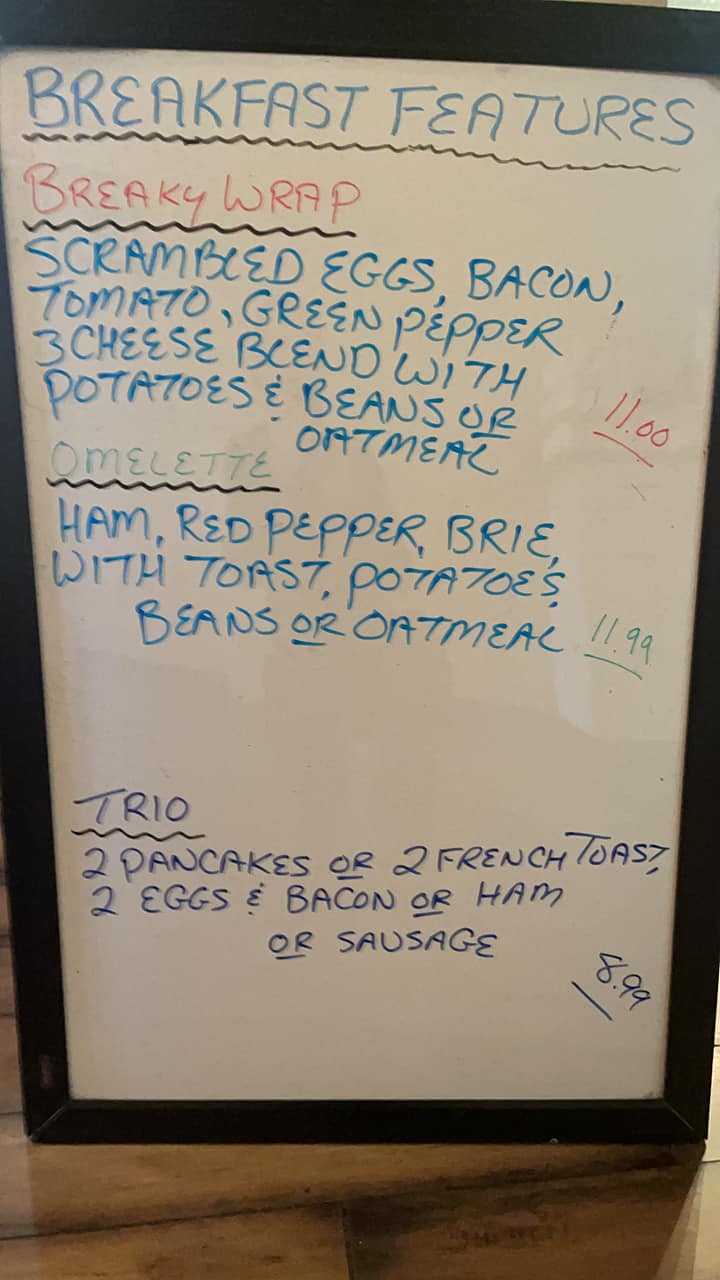 BREAKFAST FEATURES
BREAKY WRAP
SCRAMBLED EGGS, BACON,
TOMATO, GREEN PEPPER
3 CHEESE BLEND WITH
POTATOES & BEANS OR
OATMEAL
11.00
OMELETTE
HAM, RED PEPPER, BRIE,
WITH TOAST, POTATOES,
BEANS OR OATMEAL 11.99
TRIO
2 PANCAKES OR 2 FRENCH TOAST,
2 EGGS & BACON OR HAM
OR SAUSAGE
8.99